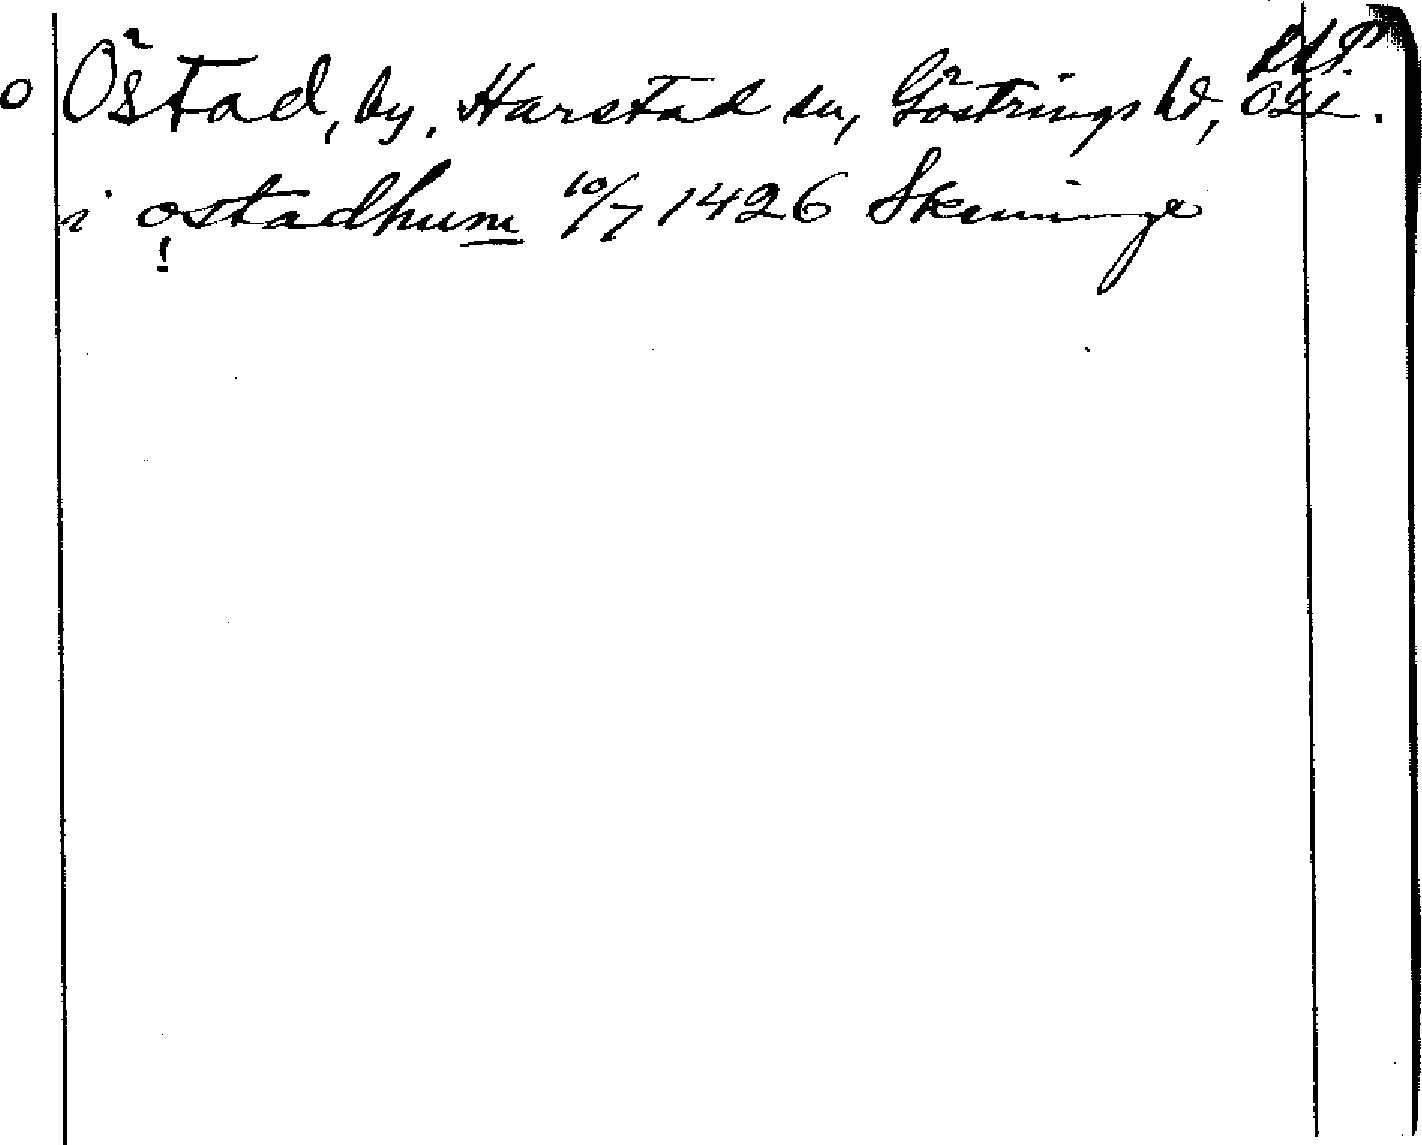 o Östad, by, Harstad sn, Göstrings hd, Ögl.
i ostadhum 10/7 1426 Skeninge
!